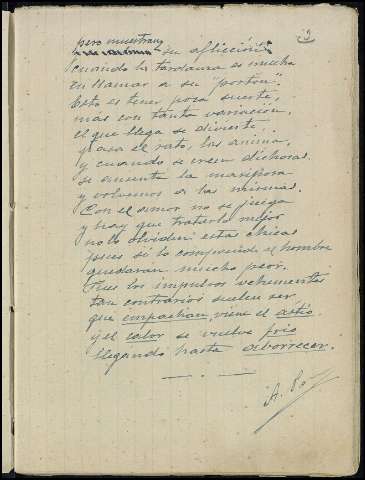 pero muestran su aflicción
cuando la tardanza es mucha
en llamar a su "portón".
Esto es tener poca suerte,
mas con tanta variación,
el que llega se divierte,
pasa el rato, las anima,
y cuando se creen dichosas
se ausenta la mariposa
y volvemos a las mismas.
Con el amor no se juega
y hay que tratarlo mejor
no lo olviden estas chicas
pues si lo comprende el hombre
quedaran mucho peor.
Pues los impulsos vehementes
tan contrarios suelen ser,
que empachan, viene el astío
y el calor se vuelve frio
llegando hasta aborrecer.
A.